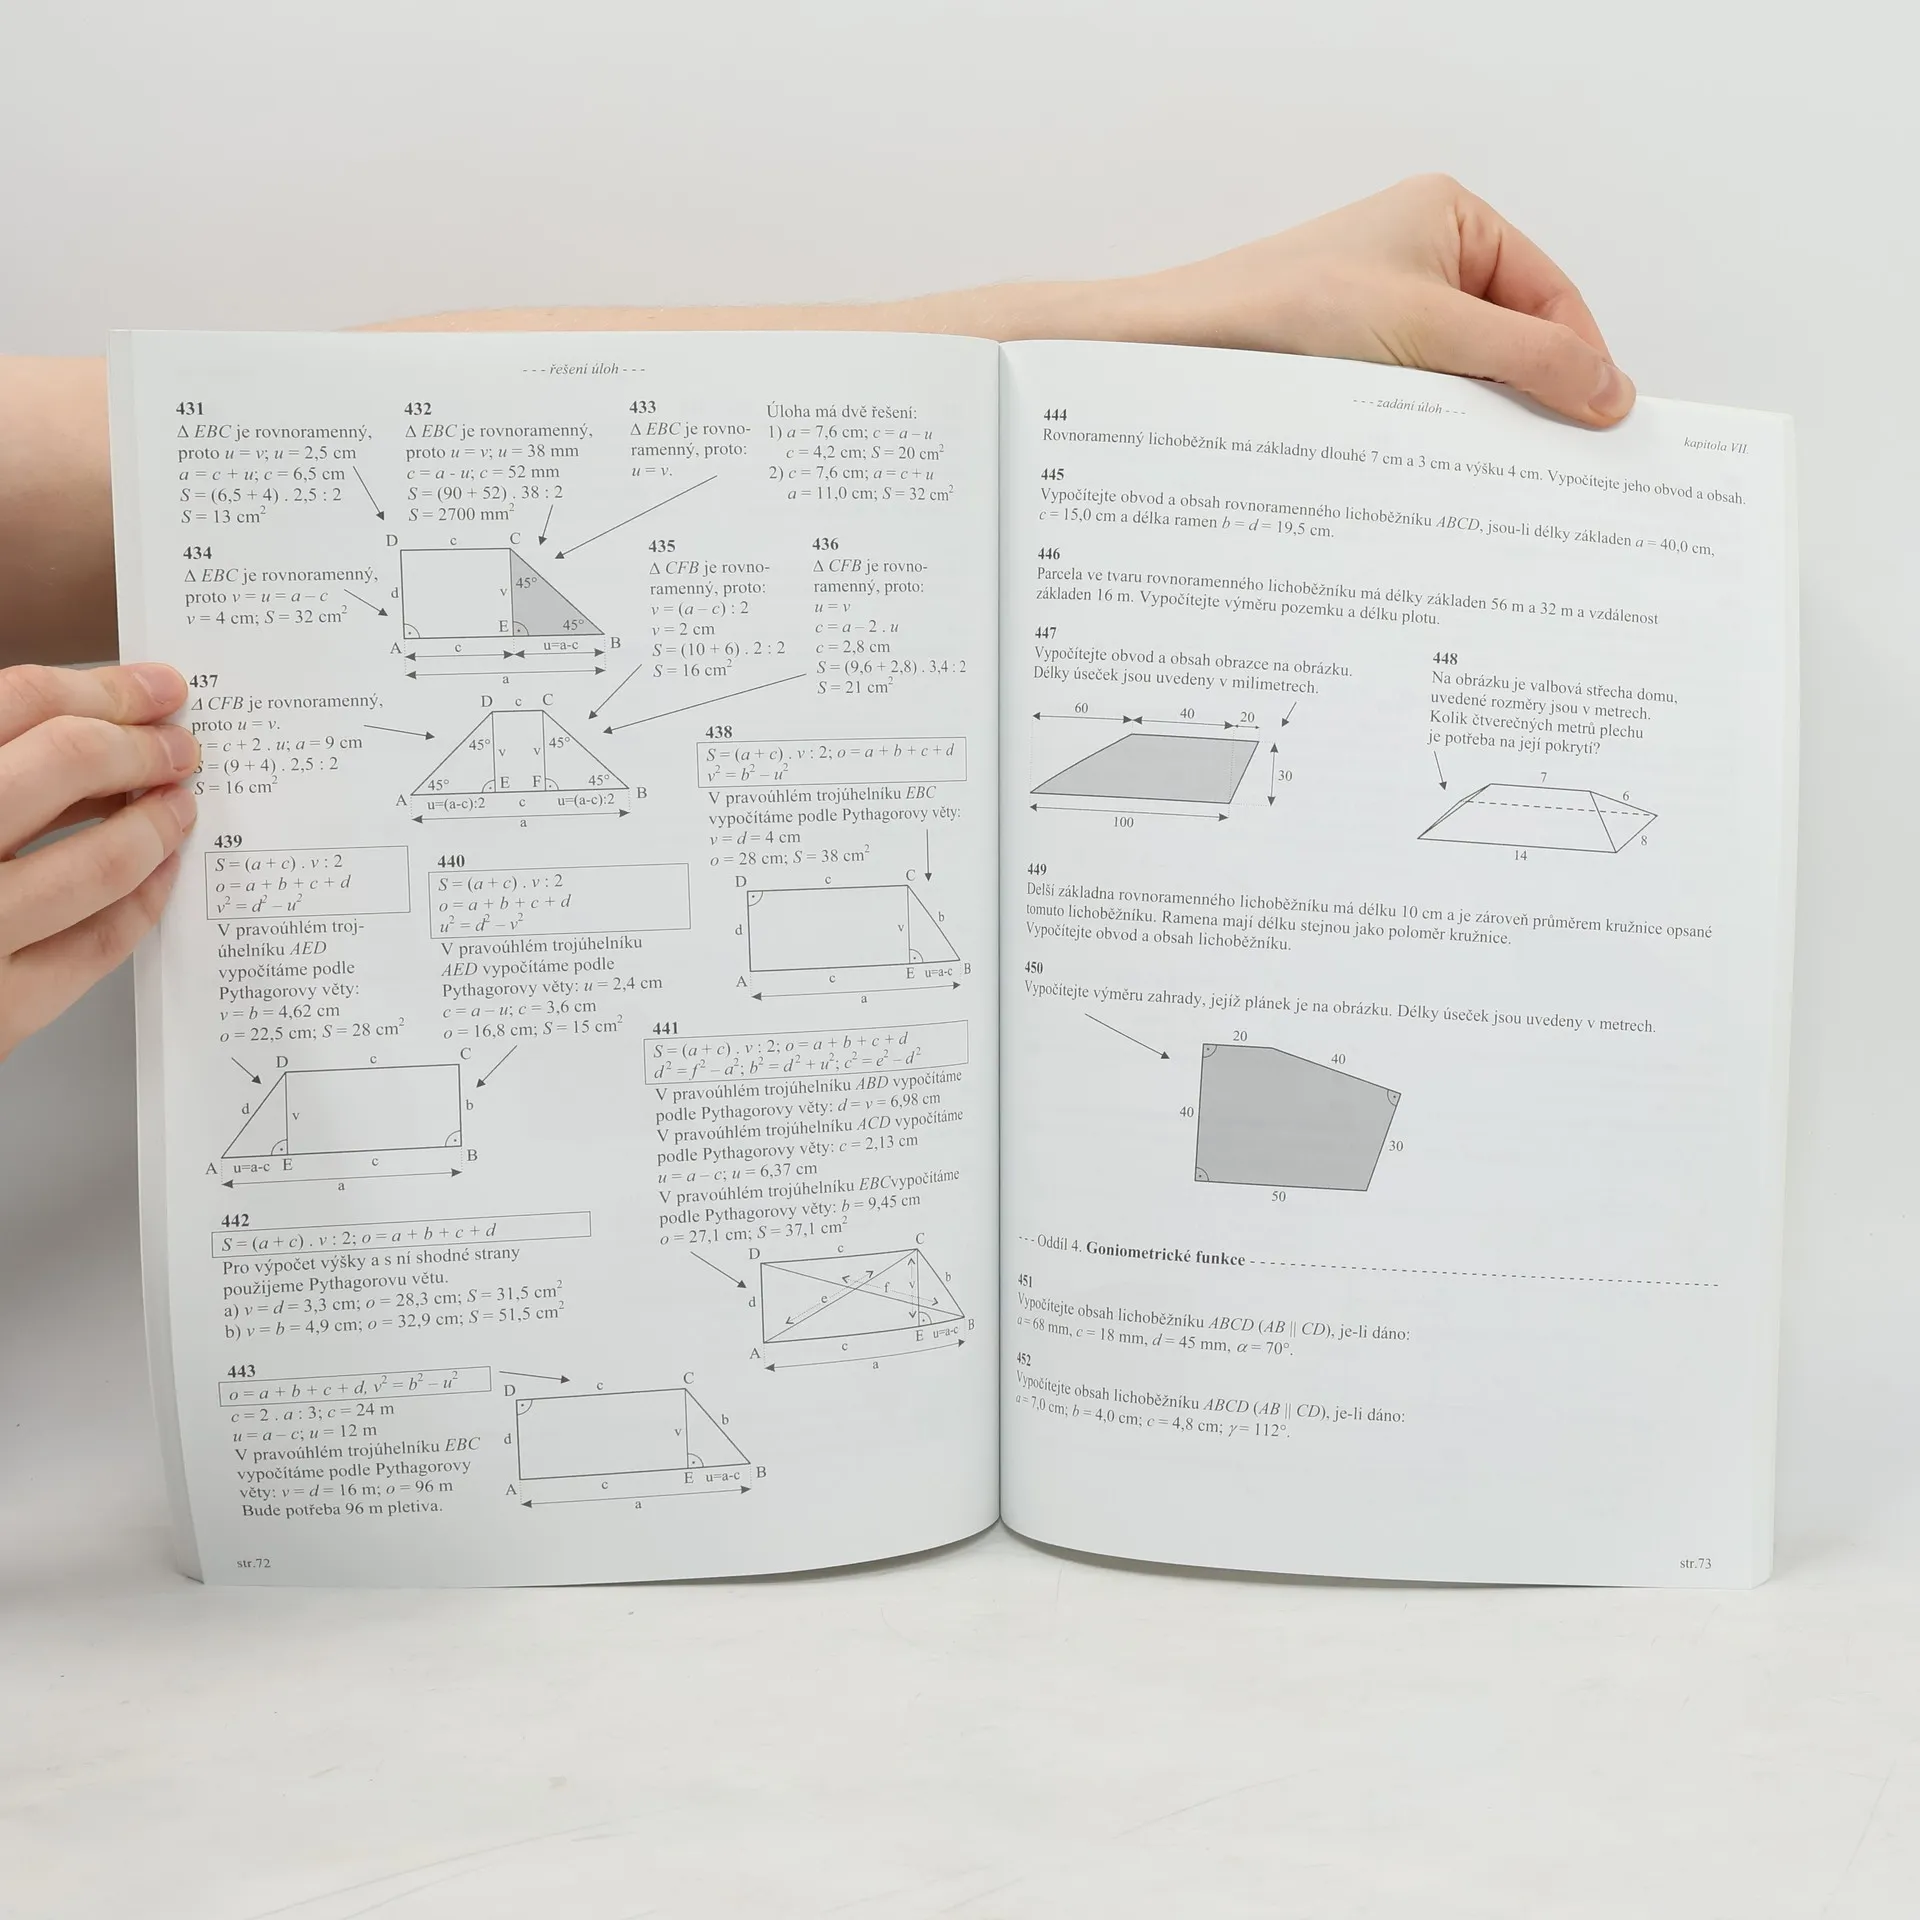 --- řešení úloh ---
431
Δ EBC je rovnoramenný,
proto u = v; u = 2,5 cm
a = c + u; c = 6,5 cm
S = (6,5 + 4) . 2,5 : 2
S = 13 cm²
432
Δ EBC je rovnoramenný,
proto u = v; u = 38 mm
c = a - u; c = 52 mm
S = (90 + 52) . 38 : 2
S = 2700 mm²
433
Δ EBC je rovno-
ramenný, proto:
u = v.
Úloha má dvě řešení:
1) a = 7,6 cm; c = a – u
c = 4,2 cm; S = 20 cm²
2) c = 7,6 cm; a = c + u
a = 11,0 cm; S = 32 cm²
434
Δ EBC je rovnoramenný,
proto v = u = a – c
v = 4 cm; S = 32 cm²
D c C
d v 45°
E 45°
A c u=a-c B
a
435
Δ CFB je rovno-
ramenný, proto:
v = (a – c) : 2
v = 2 cm
S = (10 + 6) . 2 : 2
S = 16 cm²
436
Δ CFB je rovno-
ramenný, proto:
u = v
c = a – 2 . u
c = 2,8 cm
S = (9,6 + 2,8) . 3,4 : 2
S = 21 cm²
437
Δ CFB je rovnoramenný,
proto u = v.
= c + 2 . u; a = 9 cm
S = (9 + 4) . 2,5 : 2
S = 16 cm²
D c C
45° v v 45°
45° E F 45°
A u=(a-c):2 c u=(a-c):2 B
a
438
S = (a + c) . v : 2; o = a + b + c + d
v² = b² – u²
V pravoúhlém trojúhelníku EBC
vypočítáme podle Pythagorovy věty:
v = d = 4 cm
o = 28 cm; S = 38 cm²
D c C
d v b
A c E u=a-c B
a
439
S = (a + c) . v : 2
o = a + b + c + d
v² = d² – u²
V pravoúhlém troj-
úhelníku AED
vypočítáme podle
Pythagorovy věty:
v = b = 4,62 cm
o = 22,5 cm; S = 28 cm²
440
S = (a + c) . v : 2
o = a + b + c + d
u² = d² – v²
V pravoúhlém trojúhelníku
AED vypočítáme podle
Pythagorovy věty: u = 2,4 cm
c = a – u; c = 3,6 cm
o = 16,8 cm; S = 15 cm²
D c C
d v b
A u=a-c E c B
a
441
S = (a + c) . v : 2; o = a + b + c + d
d² = f² – a²; b² = d² + u²; c² = e² – d²
V pravoúhlém trojúhelníku ABD vypočítáme
podle Pythagorovy věty: d = v = 6,98 cm
V pravoúhlém trojúhelníku ACD vypočítáme
podle Pythagorovy věty: c = 2,13 cm
u = a – c; u = 6,37 cm
V pravoúhlém trojúhelníku EBCvypočítáme
podle Pythagorovy věty: b = 9,45 cm
o = 27,1 cm; S = 37,1 cm²
D c C
d e f v b
A c E u=a-c B
a
442
S = (a + c) . v : 2; o = a + b + c + d
Pro výpočet výšky a s ní shodné strany
použijeme Pythagorovu větu.
a) v = d = 3,3 cm; o = 28,3 cm; S = 31,5 cm²
b) v = b = 4,9 cm; o = 32,9 cm; S = 51,5 cm²
443
o = a + b + c + d, v² = b² – u²
c = 2 . a : 3; c = 24 m
u = a – c; u = 12 m
V pravoúhlém trojúhelníku EBC
vypočítáme podle Pythagorovy
věty: v = d = 16 m; o = 96 m
Bude potřeba 96 m pletiva.
D c C
d v b
A c E u=a-c B
a
str.72
--- zadání úloh ---
kapitola VII.
444
Rovnoramenný lichoběžník má základny dlouhé 7 cm a 3 cm a výšku 4 cm. Vypočítejte jeho obvod a obsah.
445
Vypočítejte obvod a obsah rovnoramenného lichoběžníku ABCD, jsou-li délky základen a = 40,0 cm,
c = 15,0 cm a délka ramen b = d = 19,5 cm.
446
Parcela ve tvaru rovnoramenného lichoběžníku má délky základen 56 m a 32 m a vzdálenost
základen 16 m. Vypočítejte výměru pozemku a délku plotu.
447
Vypočítejte obvod a obsah obrazce na obrázku.
Délky úseček jsou uvedeny v milimetrech.
60 40 20
30
100
448
Na obrázku je valbová střecha domu,
uvedené rozměry jsou v metrech.
Kolik čtverečných metrů plechu
je potřeba na její pokrytí?
7
6
8
14
449
Delší základna rovnoramenného lichoběžníku má délku 10 cm a je zároveň průměrem kružnice opsané
tomuto lichoběžníku. Ramena mají délku stejnou jako poloměr kružnice.
Vypočítejte obvod a obsah lichoběžníku.
450
Vypočítejte výměru zahrady, jejíž plánek je na obrázku. Délky úseček jsou uvedeny v metrech.
20
40
40
30
50
--- Oddíl 4. Goniometrické funkce ---
451
Vypočítejte obsah lichoběžníku ABCD (AB || CD), je-li dáno:
a = 68 mm, c = 18 mm, d = 45 mm, α = 70°.
452
Vypočítejte obsah lichoběžníku ABCD (AB || CD), je-li dáno:
a = 7,0 cm; b = 4,0 cm; c = 4,8 cm; γ = 112°.
str.73